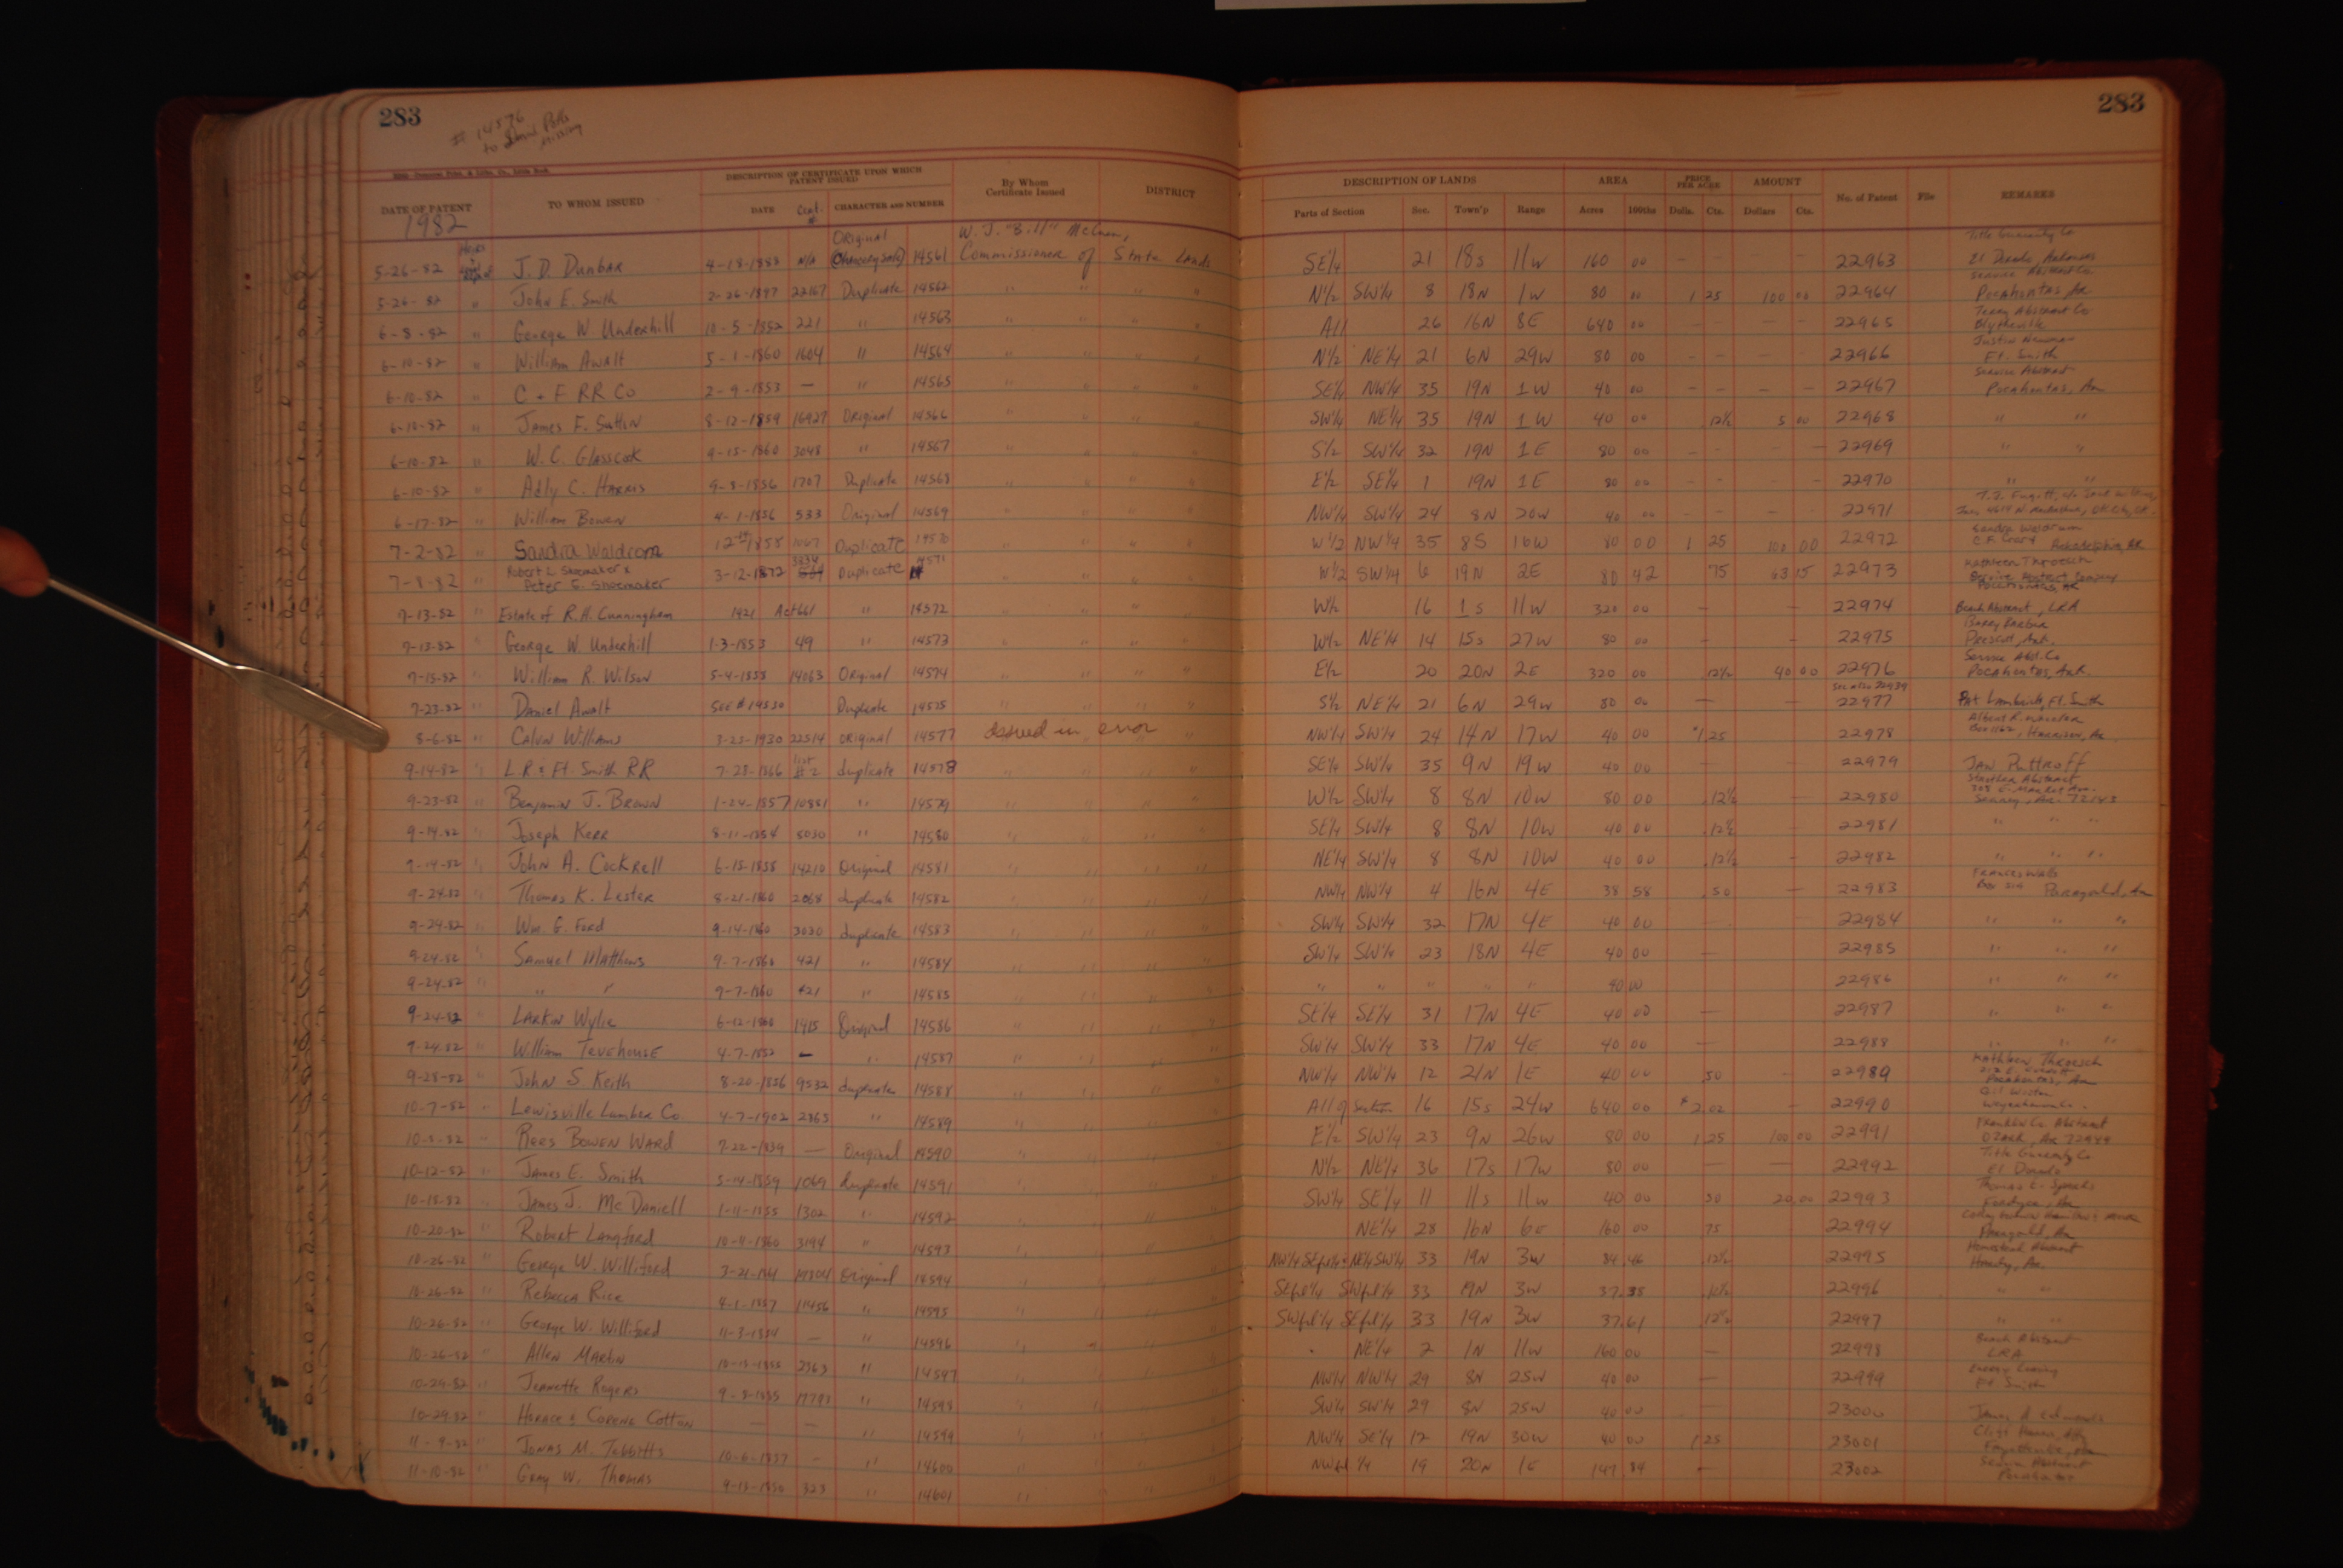 283
# 14576
to
Missing
DESCRIPTION OF CERTIFICATE UPON WHICH PATENT ISSUED
DATE OF PATENT TO WHOM ISSUED DATE Cert. # CHARACTER AND NUMBER By Whom Certificate Issued DISTRICT
1982
W. J. "Bill" McCuen,
5-26-82 J. D. Dunbar 4-18-1888 N/A Original (Chancery Sale) 14561 Commissioner of State Lands
5-26-82 " John E. Smith 2-26-1897 22167 Duplicate 14562 " " " "
6-8-82 " George W. Underhill 10-5-1852 221 " 14563 " " " "
6-10-82 " William Awalt 5-1-1860 1604 " 14564 " " " "
6-10-82 " C + F RR Co 2-9-1853 — " 14565 " " " "
6-10-82 " James F. Sutton 8-12-1859 16927 Original 14566 " " " "
6-10-82 " W. C. Glasscock 9-15-1860 3048 " 14567 " " " "
6-10-82 " Adly C. Harris 9-8-1856 1707 Duplicate 14568 " " " "
6-17-82 " William Bowen 4-1-1856 533 Original 14569 " " " "
7-2-82 " Sandra Waldrom 1855 1067 Duplicate 14570 " " " "
7-8-82 " Robert L Shoemaker & Peter E. Shoemaker 3-12-1872 3834 Duplicate 14571 " " " "
7-13-82 " Estate of R. H. Cunningham 1921 Act 661 " 14572 " " " "
7-13-82 " George W. Underhill 1-3-1853 49 " 14573 " " " "
7-15-82 " William R. Wilson 5-4-1855 14063 Original 14574 " " " "
7-23-82 " Daniel Awalt See # 14530 Duplicate 14575 " " " "
8-6-82 " Calvin Williams 3-23-1930 22514 Original 14577 Issued in error
9-14-82 " L R & Ft. Smith RR 7-28-1866 List #2 duplicate 14578 " " " "
9-23-82 " Benjamin J. Brown 1-24-1857 10881 " 14579 " " " "
9-14-82 " Joseph Kerr 8-11-1854 8030 " 14580 " " " "
9-14-82 " John A. Cockrell 6-15-1855 14210 Original 14581 " " " "
9-24-82 " Thomas K. Lester 8-21-1860 2068 duplicate 14582 " " " "
9-24-82 " Wm. G. Ford 9-14-1860 3020 duplicate 14583 " " " "
9-24-82 " Samuel Matthews 9-7-1860 421 " 14584 " " " "
9-24-82 " " " 9-7-1860 421 " 14585 " " " "
9-24-82 " Larkin Wylie 6-12-1860 1415 Original 14586 " " " "
9-24-82 " William Tevehouse 4-7-1852 — " 14587 " " " "
9-28-82 " John S Keith 8-20-1856 9532 duplicate 14588 " " " "
10-7-82 " Lewisville Lumber Co. 4-7-1902 2863 " 14589 " " " "
10-8-82 " Rees Bowen Ward 7-22-1839 — Original 14590 " " " "
10-12-82 " James E. Smith 5-14-1859 1069 duplicate 14591 " " " "
10-15-82 " James J. McDaniell 1-11-1855 1302 " 14592 " " " "
10-20-82 " Robert Langford 10-4-1860 3194 " 14593 " " " "
10-26-82 " George W. Williford 3-21-1861 Original 14594 " " " "
10-26-82 " Rebecca Rice 4-1-1857 11456 " 14595 " " " "
10-26-82 " George W. Williford 11-3-1854 — " 14596 " " " "
10-26-82 " Allen Martin 10-13-1855 2363 " 14597 " " " "
10-29-82 " Jeanette Rogers 9-8-1855 " 14598 " " " "
10-29-82 " Horace & Corene Cotton — — " 14599 " " " "
11-9-82 " Jonas M. Tebbitts 10-6-1857 - " 14600 " " " "
11-10-82 " Gray W. Thomas 9-13-1850 323 " 14601 " " " "
283
DESCRIPTION OF LANDS AREA PRICE PER ACRE AMOUNT No. of Patent File REMARKS
Parts of Section Sec. Town'p Range Acres 100ths Dolls. Cts. Dollars Cts.
SE¼ 21 18S 11W 160 00 - - - - 22963 Title Guaranty Co El Dorado, Arkansas
N½ SW¼ 8 18N 1W 80 00 1 25 100 00 22964 Service Abstract Co. Pocahontas, Ar
All 26 16N 8E 640 00 - - - - 22965 Terry Abstract Co Blytheville
N½ NE¼ 21 6N 29W 80 00 - - - - 22966 Justin Newman Ft. Smith
SE¼ NW¼ 35 19N 1W 40 00 - - - - 22967 Service Abstract Pocahontas, Ar
SW¼ NE¼ 35 19N 1W 40 00 12½ 5 00 22968 " "
S½ SW¼ 32 19N 1E 80 00 - - - - 22969 " "
E½ SE¼ 1 19N 1E 80 00 - - - - 22970 " "
NW¼ SW¼ 24 8N 20W 40 00 - - - - 22971
W½ NW¼ 35 8S 16W 80 00 1 25 100 00 22972 Sandra Waldrum Arkadelphia, AR
W½ SW¼ 6 19N 2E 80 42 75 63 15 22973 Kathleen Throesch Service Abstract Company Pocahontas, AR
W½ 16 1S 11W 320 00 - - 22974 Beach Abstract, LRA
W½ NE¼ 14 15S 27W 80 00 - - 22975 Barry Barber Prescott, Ark.
E½ 20 20N 2E 320 00 12½ 40 00 22976 Service Abst. Co Pocahontas, Ark.
See also 22939
S½ NE¼ 21 6N 29W 80 00 — — 22977 Pat Lambert, Ft. Smith
NW¼ SW¼ 24 14N 17W 40 00 $1 25 22978 Albert R. Wheeler Box 1162, Harrison, Ar
SE¼ SW¼ 35 9N 19W 40 00 — — 22979 Jan Puttroff
W½ SW¼ 8 8N 10W 80 00 .12½ — 22980 Abstract Searcy, Ar. 72143
SE¼ SW¼ 8 8N 10W 40 00 .12½ — 22981 " " "
NE¼ SW¼ 8 8N 10W 40 00 .12½ — 22982 " " "
NW¼ NW¼ 4 16N 4E 38 58 .50 — 22983 Paragould, Ar
SW¼ SW¼ 32 17N 4E 40 00 — 22984 " " "
SW¼ SW¼ 23 18N 4E 40 00 — 22985 " " "
" " " " " 40 00 22986 " " "
SE¼ SE¼ 31 17N 4E 40 00 — 22987 " " "
SW¼ SW¼ 33 17N 4E 40 00 — 22988 " " "
NW¼ NW¼ 12 21N 1E 40 00 .50 — 22989 Kathleen Throesch Pocahontas, Ar
All of Section 16 15S 24W 640 00 $2.02 — 22990
E½ SW¼ 23 9N 26W 80 00 1 25 100 00 22991 Franklin Co. Abstract Ozark, Ar 72949
N½ NE¼ 36 17S 17W 80 00 — — 22992 Title Guaranty Co El Dorado
SW¼ SE¼ 11 11S 11W 40 00 50 20.00 22993 Thomas E. Sparks Fordyce, Ar
NE¼ 28 16N 6E 160 00 75 22994 Paragould, Ar
NW¼ SEfrl¼ + NE¼ SW¼ 33 19N 3W 84.46 .12½ 22995 Homestead Abstract Hardy, Ar.
SEfrl¼ SWfrl¼ 33 19N 3W 37.38 .12½ 22996 " "
SWfrl¼ SEfrl¼ 33 19N 3W 37.61 .12½ 22997 " "
NE¼ 2 1N 11W 160 00 — 22998 Beach Abstract LRA
NW¼ NW¼ 29 8N 25W 40 00 — 22999 Ft Smith
SW¼ SW¼ 29 8N 25W 40 00 — 23000
NW¼ SE¼ 12 19N 30W 40 00 1 25 23001 Fayetteville, Ar
NWfrl¼ 19 20N 1E 147 84 — 23002 Service Abstract Pocahontas